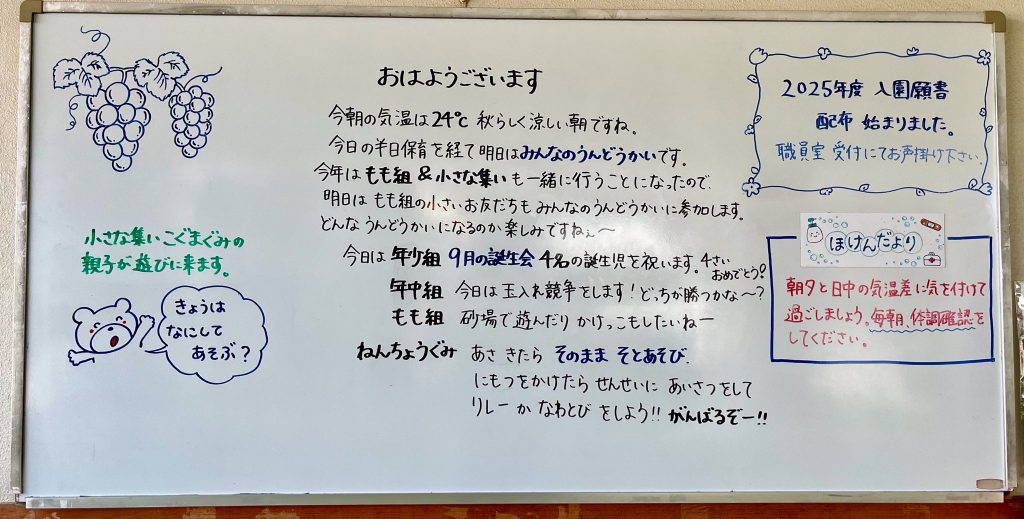 おはようございます
今朝の気温は24℃ 秋らしく涼しい朝ですね。
今日の半日保育を経て明日はみんなのうんどうかいです。
今年は もも組 & 小さな集い も一緒に行うことになったので、
明日は もも組の小さいお友だちも みんなのうんどうかいに参加します。
どんな うんどうかいになるのか楽しみですねぇ〜
今日は 年少組 9月の誕生会 4名の誕生児を祝います。4さい
おめでとう♡
年中組 今日は玉入れ競争をします!どっちが勝つかな〜?
もも組 砂場で遊んだり かけっこもしたいねー
ねんちょうぐみ あさ きたら そのまま そとあそび。
にもつをかけたら せんせいに あいさつをして
リレー か なわとび をしよう!! がんばるぞー!!
小さな集い こぐまぐみの
親子が遊びに来ます。
きょうは
なにして
あそぶ?
2025年度 入園願書
配布 始まりました。
職員室 受付にてお声掛け下さい。
ほけんだより
朝夕と日中の気温差に気を付けて
過ごしましょう。毎朝、体調確認を
してください。